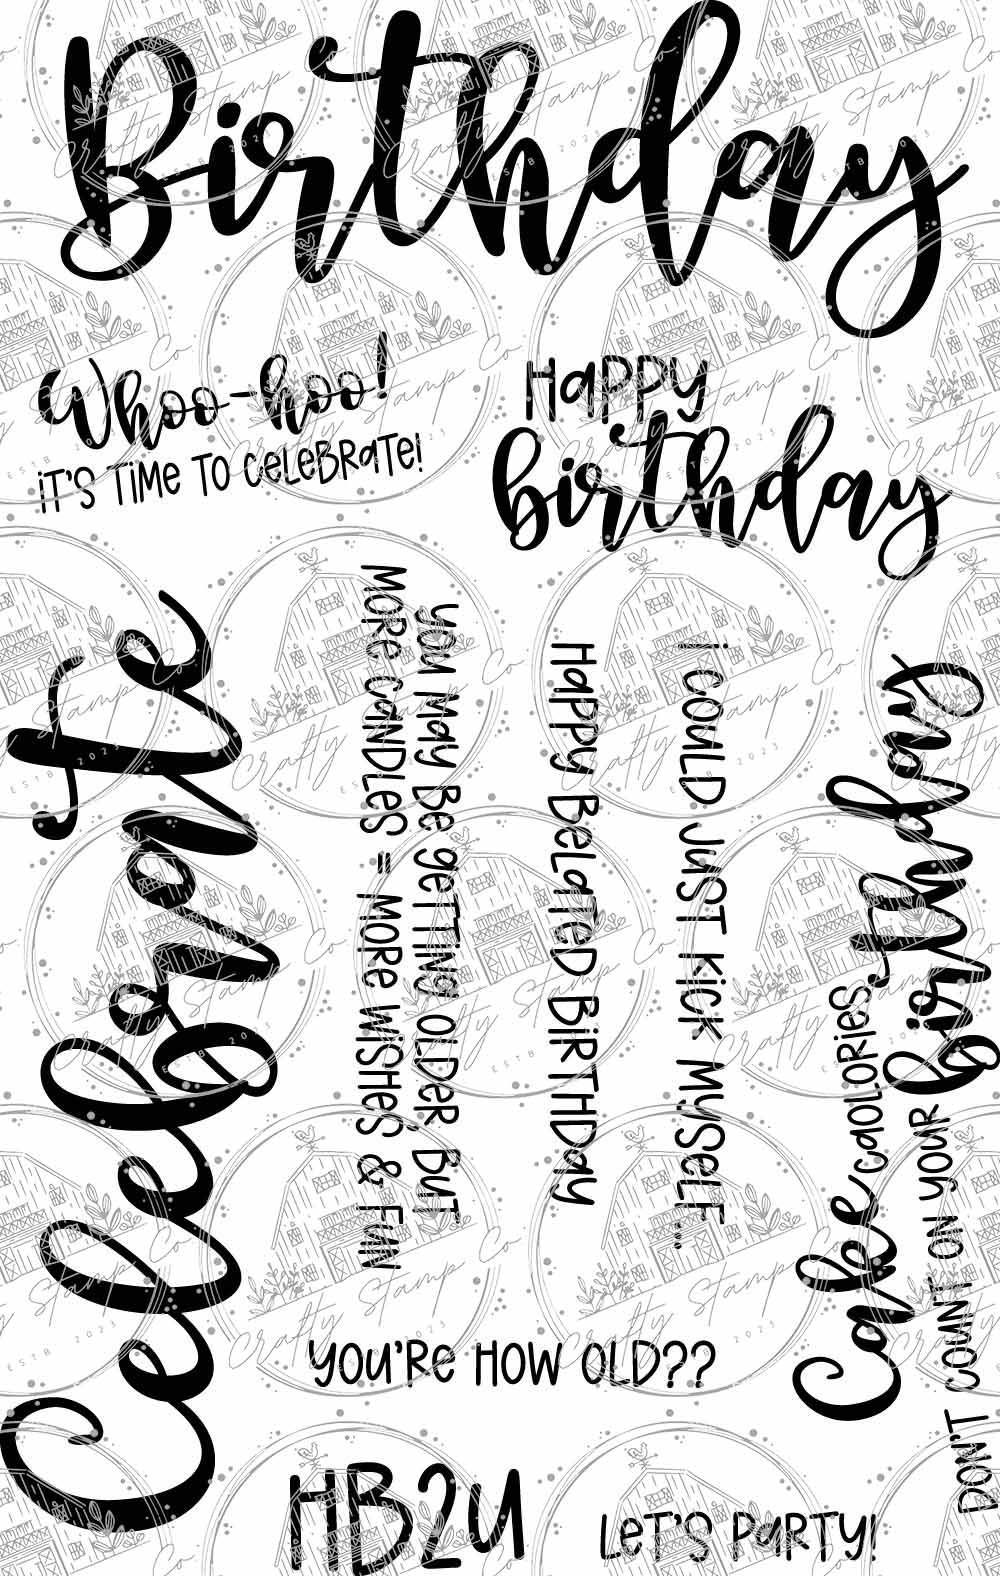 Birthday
Whoo-hoo!
iT'S TiMe TO CeLeBRaTe!
HaPPy
birthday
Celebrate
you May Be geTTiNg OLDeR, BuT
MORe CaNDLeS = MORe WiSHeS & FuN
HaPPy BeLaTeD BiRTHDay
i COuLD JuST KiCK MySeLF...
Cake CaLORieS
DON'T COuNT ON yOuR birthday
yOu'Re HOW OLD??
HB2U
LeT'S PaRTy!
Crafty Stamp Co
ESTB 2023